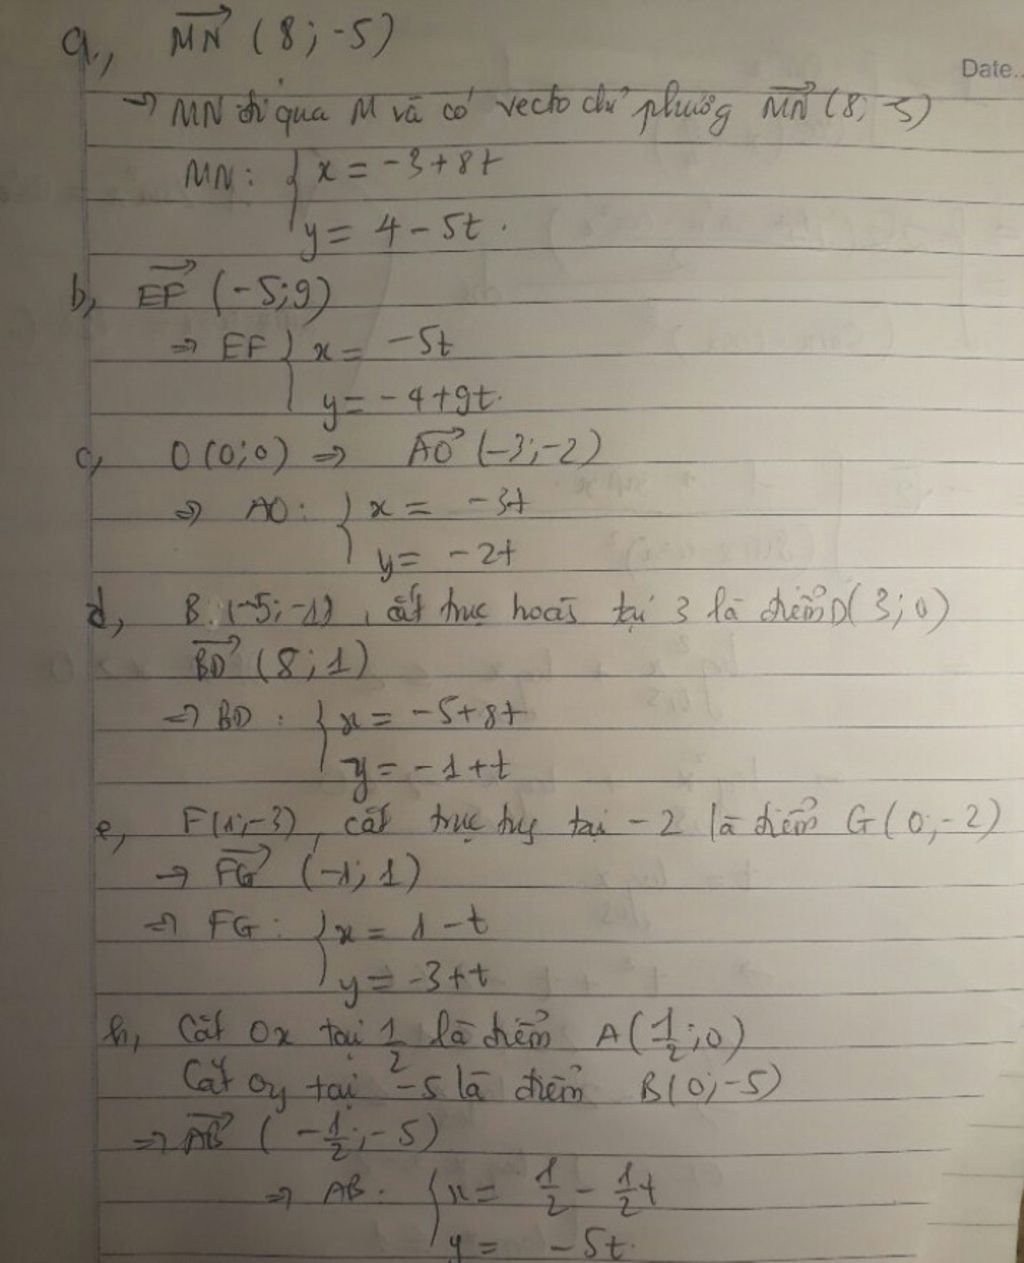 a., MN (8; -5)
Date..
→ MN đi qua M và có vecto chỉ phương MN (8; -5)
MN: { x = -3 + 8t
y = 4 - 5t.
b, EF (-5; 9)
⇒ EF { x = -5t
y = -4 + 9t.
c, O (0; 0) ⇒ AO (-3; -2)
⇒ AO: { x = -3t
y = -2t
d, B (-5; -1), cắt trục hoành tại 3 là điểm D( 3; 0)
BD (8; 1)
⇒ BD: { x = -5 + 8t
y = -1 + t
e, F(1; -3), cắt trục tug tại -2 là điểm G( 0; -2)
→ FG (-1; 1)
⇒ FG: { x = 1 - t
y = -3 + t
h, Cắt Ox tại 1/2 là điểm A( 1/2; 0)
Cắt Oy tại -5 là điểm B( 0; -5)
⇒ AB ( -1/2; -5)
⇒ AB: { x = 1/2 - 1/2t
y = -5t.